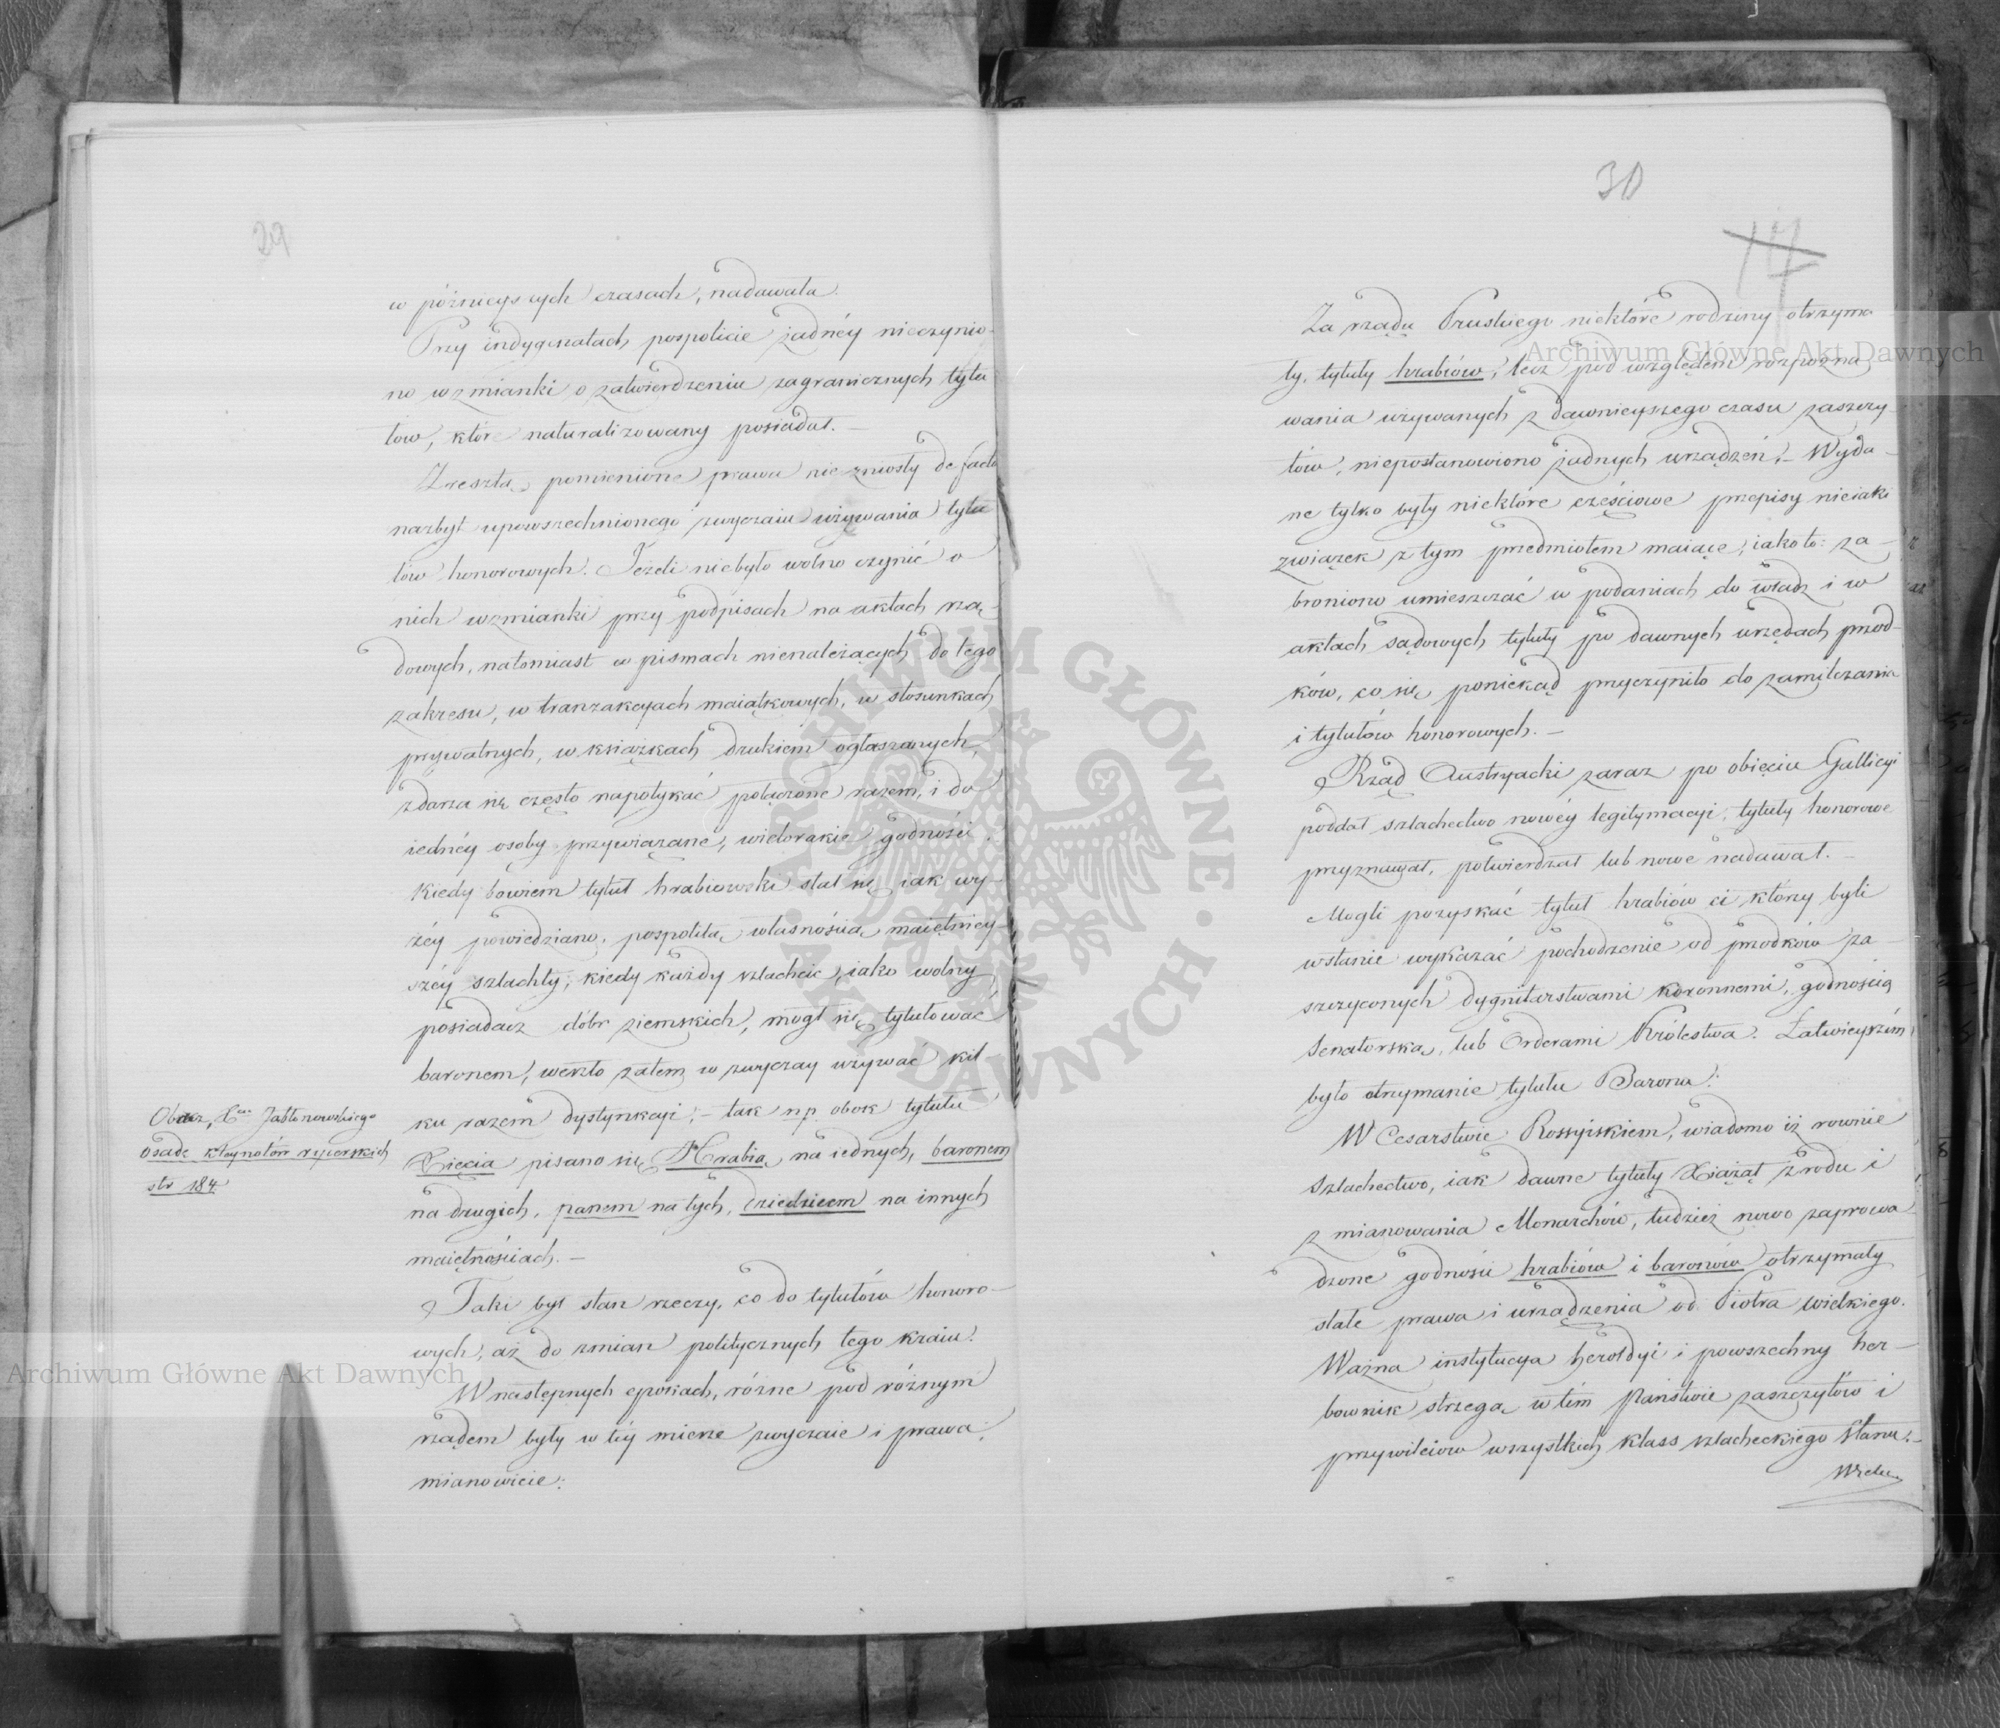 29
w późnieyszych czasach, nadawała.
Przy indygenatach pospolicie żadnéy nieczynio-
no wzmianki o zatwierdzeniu zagranicznych tytu
łow, które naturalizowany posiadał. —
Zresztą pomienione prawa nie zniosły de facto
nazbyt upowszechnionego zwyczaiu używania tytu
łów honorowych. Jeżeli niebyło wolno czynić o
nich wzmianki przy podpisach na aktach rzą-
dowych, natomiast w pismach nienależących do tego
zakresu, w tranzakcyach maiątkowych, w stosunkach
prywatnych, w książkach drukiem ogłaszanych,
zdarza się często napotykać połączone razem, i do
iednéy osoby przywiązane, wielorakie godności.
Kiedy bowiem tytuł hrabiowski stał się iak wy-
żéy powiedziano, pospolitą własnością maiętniey-
széy szlachty; kiedy każdy szlachcic, iako wolny
posiadacz dóbr ziemskich, mógł się tytułować
baronem, weszło zatem w zwyczay używać kil-
ku razem dystynkcyi; — tak np. obok tytułu
Xięcia pisano się Hrabią na iednych, baronem
na drugich, panem na tych, dziedzicem na innych
maiętnościach. —
Taki był stan rzeczy, co do tytułów honoro-
wych, aż do zmian politycznych tego kraiu.
W następnych epokach, różne pod różnym
rządem były w téy mierze zwyczaie i prawa;
mianowicie:
Obacz, Xcia Jabłonowskiego
osadę kleynotów rycerskich
str 184
30
17
Za rządu Pruskiego niektóre rodziny otrzyma
ły, tytuły hrabiów, lecz pod względem rozpozna
wania używanych z dawnieyszego czasu zaszczy-
tów, niepostanowiono żadnych urządzeń. — Wyda-
ne tylko były niektóre cześciowe przepisy nieiaki
związek z tym przedmiotem maiące, iako to: za-
broniono umieszczać w podaniach do władz i w
aktach sądowych tytuły po dawnych urzędach przod-
ków, co się poniekąd przyczyniło do zamilczania
i tytułów honorowych. —
Rząd Austryacki zaraz po obięciu Gallicyi
poddał szlachectwo nowéy legitymacyi, tytuły honorowe
przyznawał, potwierdzał lub nowe nadawał. —
Mogli pozyskać tytuł hrabiów ci którzy byli
wstanie wykazać pochodzenie od przodków za-
szczyconych dygnitarstwami koronnemi, godnością
Senatorską, lub Orderami Królestwa. Łatwieyszém
było otrzymanie tytułu Barona.
W Cesarstwie Rossyiskiem, wiadomo iż rownie
Szlachectwo, iak dawne tytuły Xiążąt z rodu i
z mianowania Monarchów, tudzież nowo zaprowa-
dzone godności hrabiów i baronów otrzymały
stałe prawa i urządzenia od Piotra wielkiego.
Ważna instytucya heroldyi i powszechny her-
bownik strzegą w tém Państwie zaszczytów i
przywileiow wszystkich klass szlacheckiego stanu. —
Archiwum Główne Akt Dawnych
Archiwum Główne Akt Dawnych
ARCHIWUM GŁÓWNE · AKT DAWNYCH ·